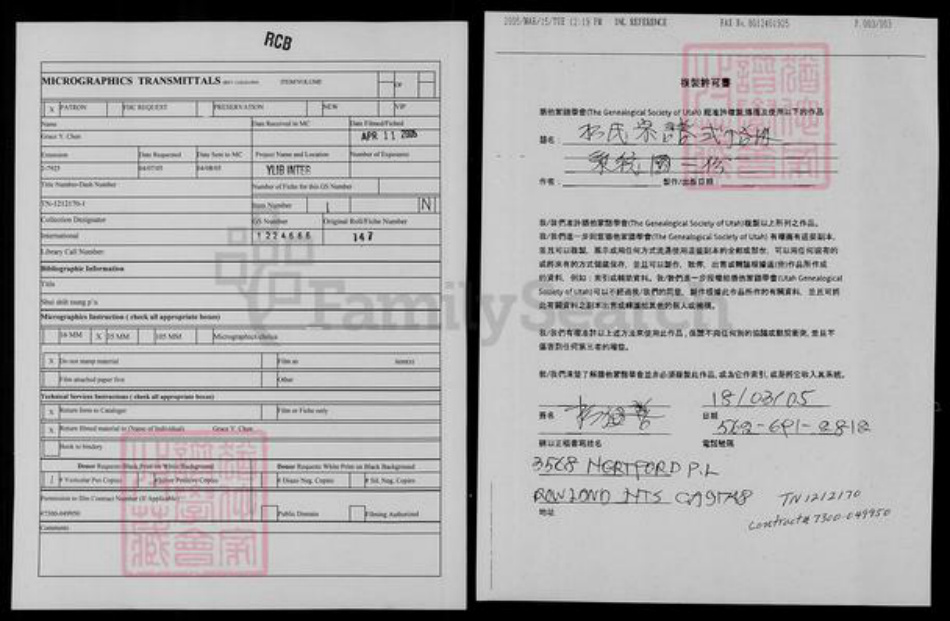 RCB
MICROGRAPHICS TRANSMITTALS ITEM/VOLUME OF
X PATRON FHC REQUEST PRESERVATION NEW VIP
Name Date Received to MC Date Filmed/Fiched
Grace Y. Chen APR 11 2005
Extension Date Requested Date Sent to MC Project Name and Location Number of Exposures
2-7925 04/07/05 04/08/05 YLIB INTER
Title Number-Dash Number Number of Fiche for this GS Number
TN-1212170-1 Item Number 1 N
Collection Designator GS Number Original Roll/Fiche Number
International 1224666 147
Library Call Number:
Bibliographic Information
Title
Shui shih tsung p'u
Micrographics Instruction ( check all appropriate boxes)
16 MM X 35 MM 105 MM Micrographics choice
X Do not stamp material Film as item(s)
Film attached paper first Other
Technical Services Instructions ( check all appropriate boxes)
X Return form to Cataloger Film or Fiche only
X Return filmed material to (Name of Individual) Grace Y. Chen
Book to bindery
Donor Requests Black Print on White Background Donor Requests White Print on Black Background
1 # Vesicular Pos Copies # Silver Positive Copies # Diazo Neg. Copies # Sil. Neg. Copies
Permission to film Contract Number (If Applicable)
07300-049950 Public Domain Filming Authorized
Comments
FamilySearch
2005/MAR/15/TUE 12:19 PM INL REFERENCE FAX No. 8012401925 P. 003/003
複製許可書
猶他家譜學會(The Genealogical Society of Utah) 經准許複製傳遞及使用以下的作品
題名:
作者: 製作/出版日期
我/我們准許猶他家譜學會(The Genealogical Society of Utah)複製以上所列之作品。
我/我們進一步同意猶他家譜學會(The Genealogical Society of Utah) 有權擁有這些副本,
並且可以複製, 展示或用任何方式流通使用這些副本的全部或部份, 可以用任何現有的
或將來有的方式儲藏保存, 並且可以製作, 散佈, 出售或轉讓根據這(些)作品所作成
的資料, 例如: 索引或輔助資料。我/我們進一步授權給猶他家譜學會(Utah Genealogical
Society of Utah)可以不經過我/我們的同意, 製作根據此作品所作的有關資料, 並且可將
此有關資料之副本出售或轉讓給其他的個人或機構。
我/我們有權准許以上述方法來使用此作品, 保證不向任何別的協議或默契衝突, 並且不
傷害到任何第三者的權益。
我/我們清楚了解猶他家譜學會並非必須複製此作品, 或為它作索引, 或是將它收入其系統。
18/03/05
簽名 日期
562-691-2812
請以正楷書寫姓名 電話號碼
3568 HERTFORD PL
ROWLAND HTS CA91748
地址
TN 1212170
Contract# 7300-049950